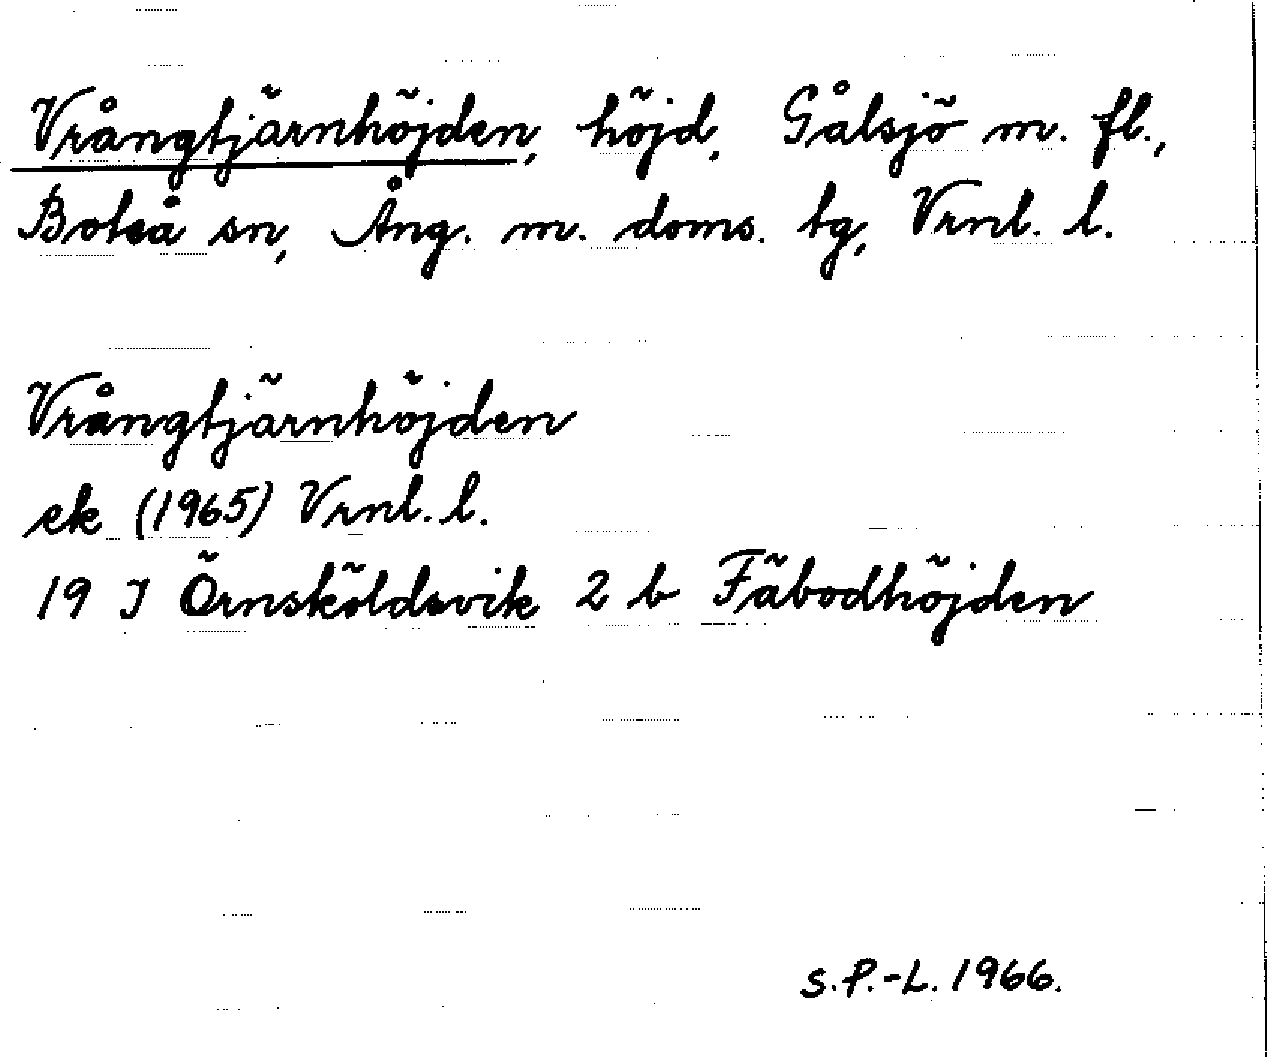 Vrångtjärnhöjden, höjd, Gålsjö m. fl.,
Boteå sn, Ång. m. doms. tg, Vrnl. l.
Vrångtjärnhöjden
ek (1965) Vrnl. l.
19 J Örnsköldsvik 2 b Fäbodhöjden
S.P.-L. 1966.